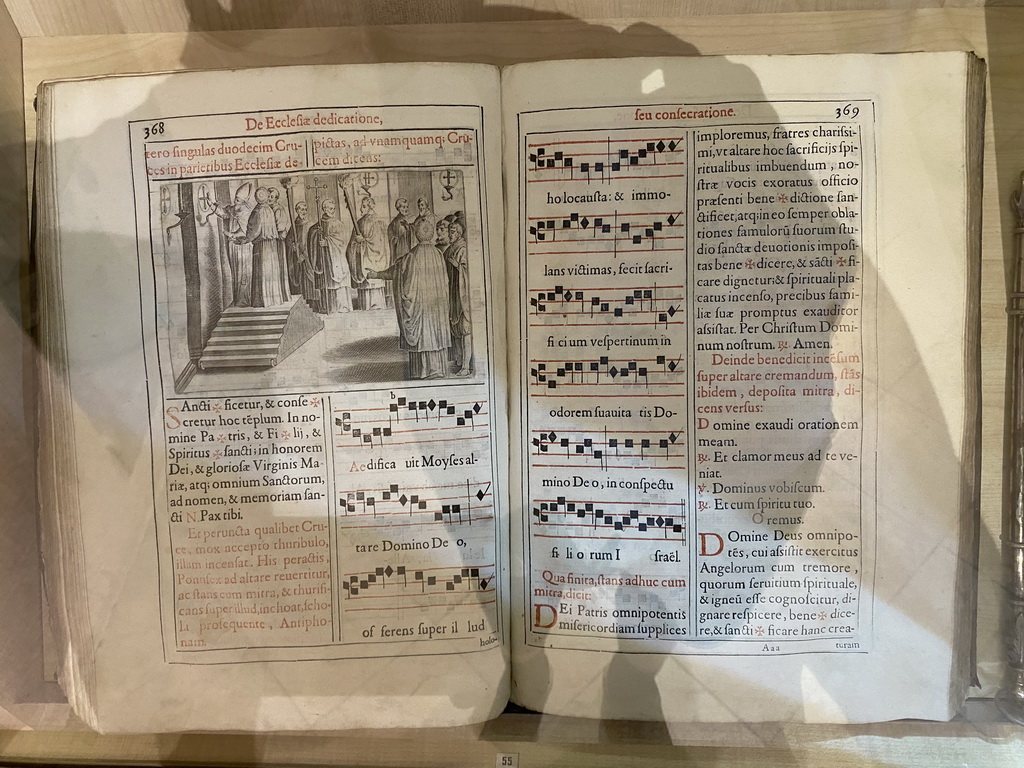 368
De Ecclesiæ dedicatione,
tero singulas duodecim Cru-
ces in parietibus Ecclesiæ de-
pictas, ad vnamquamq; Cru-
cem dicens:
SAncti ✠ ficetur, & conse ✠
cretur hoc tẽplum. In no-
mine Pa ✠ tris, & Fi ✠ lij, &
Spiritus ✠ sancti; in honorem
Dei, & gloriosæ Virginis Ma-
riæ, atq; omnium Sanctorum,
ad nomen, & memoriam san-
cti N. Pax tibi.
Et peruncta qualibet Cru-
ce, mox accepto thuribulo,
illam incensat. His peractis,
Pontifex ad altare reuertitur,
ac stans cum mitra, & thurifi-
cans super illud, inchoat, scho-
la prosequente, Antipho-
nam.
Aedifica uit Moyses al-
tare Domino De o,
of ferens super il lud
holo-
seu consecratione.
369
holocausta: & immo-
lans victimas, fecit sacri-
fi cium vespertinum in
odorem suauita tis Do-
mino De o, in conspectu
fi li o rum I sraël.
Qua finita, stans adhuc cum
mitra, dicit:
DEi Patris omnipotentis
misericordiam supplices
imploremus, fratres charissi-
mi, vt altare hoc sacrificijs spi-
ritualibus imbuendum, no-
stræ vocis exoratus officio
præsenti bene ✠ dictione san-
ctificet, atq; in eo semper obla-
tiones famulorũ suorum stu-
dio sanctæ deuotionis imposi-
tas bene ✠ dicere, & sãcti ✠ fi-
care dignetur; & spirituali pla-
catus incenso, precibus fami-
liæ suæ promptus exauditor
assistat. Per Christum Domi-
num nostrum. ℟. Amen.
Deinde benedicit incẽsum
super altare cremandum, stãs
ibidem, deposita mitra, di-
cens versus:
Domine exaudi orationem
meam.
℟. Et clamor meus ad te ve-
niat.
℣. Dominus vobiscum.
℟. Et cum spiritu tuo.
Oremus.
DOmine Deus omnipo-
tẽs, cui assistit exercitus
Angelorum cum tremore,
quorum seruitium spirituale,
& igneũ esse cognoscitur, di-
gnare respicere, bene ✠ dice-
re, & sancti ✠ ficare hanc crea-
Aaa
turam
55